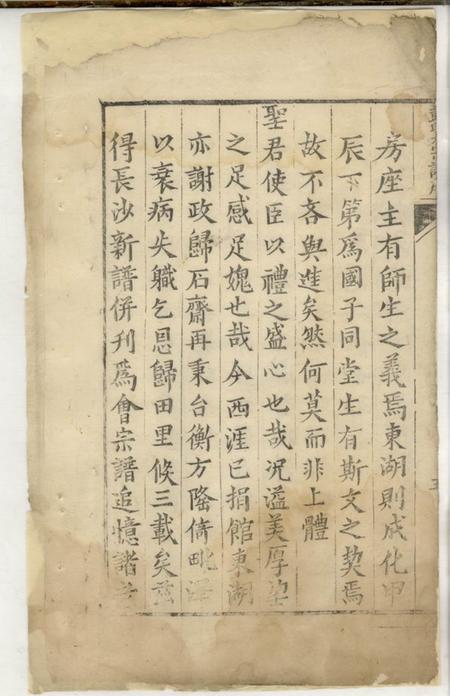 房座主有師生之義焉東湖則成化甲
辰下第為國子同堂生有斯文之契焉
故不吝與進矣然何莫而非上體
聖君使臣以禮之盛心也哉况溢美厚望
之足感足媿也哉今西涯已捐館東湖
亦謝政歸石齋再秉台衡方隆倚毗澤
以衰病失職乞恩歸田里倐三載矣茲
得長沙新譜併刊為會宗譜追憶諸